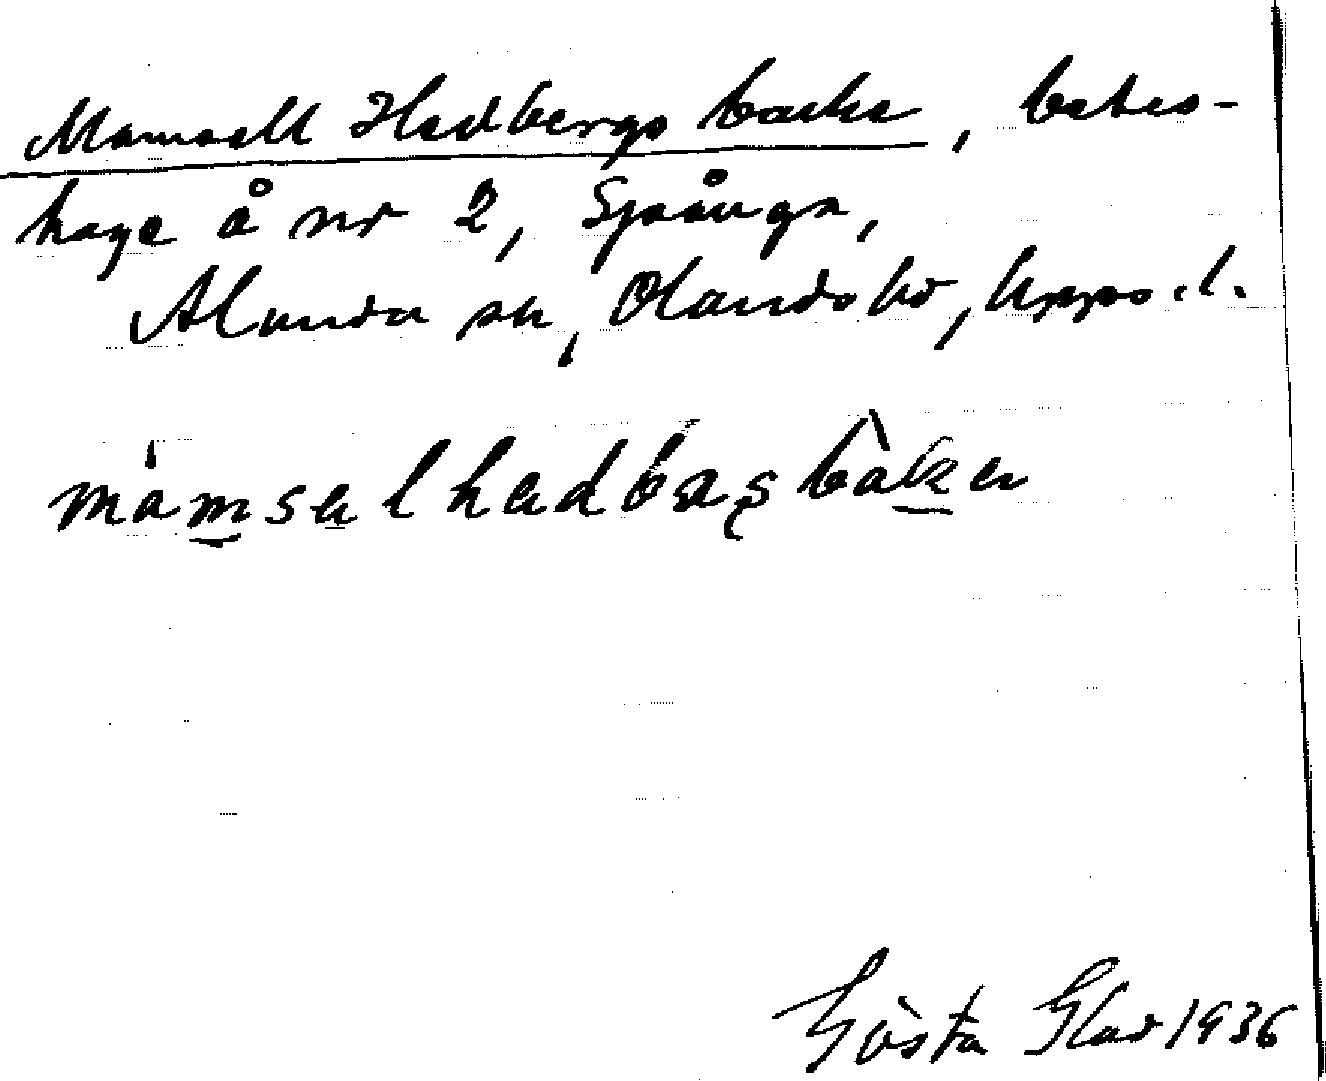 Mamsell Hedbergs backe, betes-
hage å nr 2, Spånga,
Alunda sn, Olands hd, Upps. l.
mamselhedbærsbàken
Gösta Glad 1936